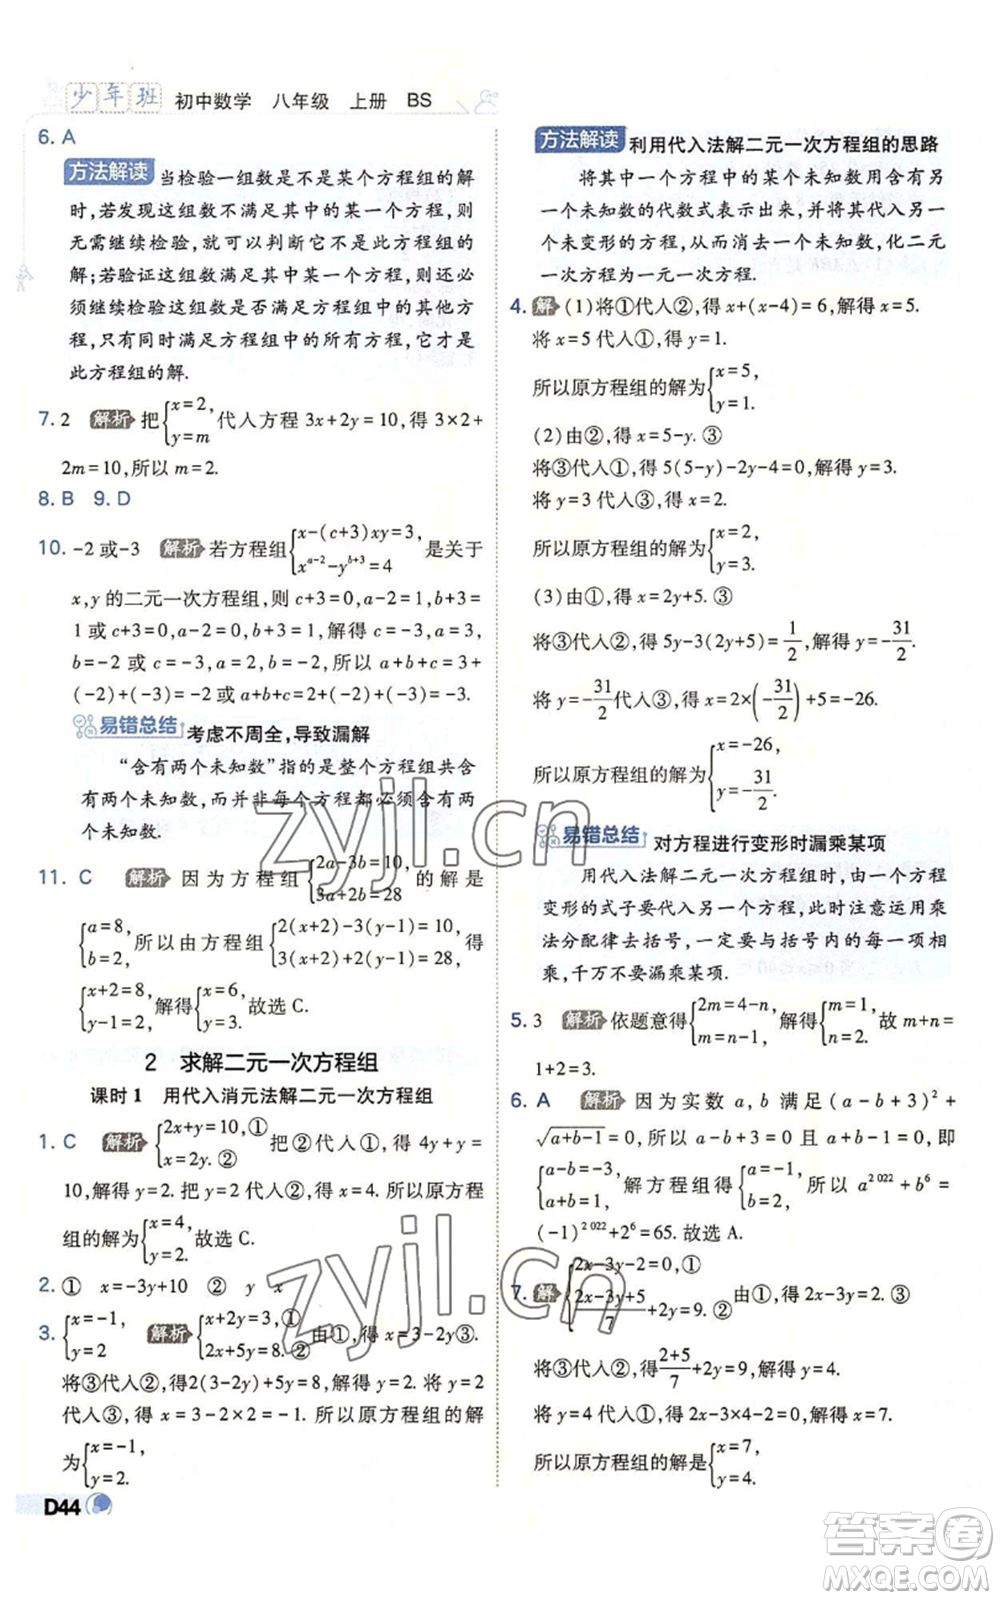 少年班 初中数学 八年级 上册 BS
6. A
方法解读 当检验一组数是不是某个方程组的解
时,若发现这组数不满足其中的某一个方程,则
无需继续检验,就可以判断它不是此方程组的
解;若验证这组数满足其中某一个方程,则还必
须继续检验这组数是否满足方程组中的其他方
程,只有同时满足方程组中的所有方程,它才是
此方程组的解.
7. 2 解析 把{x=2, y=m 代入方程 3x+2y=10,得 3×2+
2m=10,所以 m=2.
8. B 9. D
10. -2 或-3 解析 若方程组{x-(c+3)xy=3, x^{a-2}-y^{b+3}=4 是关于
x,y 的二元一次方程组,则 c+3=0,a-2=1,b+3=
1 或 c+3=0,a-2=0,b+3=1,解得 c=-3,a=3,
b=-2 或 c=-3,a=2,b=-2,所以 a+b+c=3+
(-2)+(-3)=-2 或 a+b+c=2+(-2)+(-3)=-3.
易错总结 考虑不周全,导致漏解
“含有两个未知数”指的是整个方程组共含
有两个未知数,而并非每个方程都必须含有两
个未知数.
11. C 解析 因为方程组{2a-3b=10, 3a+2b=28 的解是
{a=8, b=2, 所以由方程组{2(x+2)-3(y-1)=10, 3(x+2)+2(y-1)=28 得
{x+2=8, y-1=2, 解得{x=6, y=3, 故选 C.
2 求解二元一次方程组
课时 1 用代入消元法解二元一次方程组
1. C 解析 {2x+y=10,① x=2y.② 把②代入①,得 4y+y=
10,解得 y=2. 把 y=2 代入②,得 x=4. 所以原方程
组的解为{x=4, y=2. 故选 C.
2. ① x=-3y+10 ② y x
3. {x=-1, y=2 解析 {x+2y=3,① 2x+5y=8.② 由①,得 x=3-2y③.
将③代入②,得2(3-2y)+5y=8,解得 y=2. 将 y=2
代入③,得 x=3-2×2=-1. 所以原方程组的解
为{x=-1, y=2.
D44
方法解读 利用代入法解二元一次方程组的思路
将其中一个方程中的某个未知数用含有另
一个未知数的代数式表示出来,并将其代入另一
个未变形的方程,从而消去一个未知数,化二元
一次方程为一元一次方程.
4. 解 (1)将①代入②,得 x+(x-4)=6,解得 x=5.
将 x=5 代入①,得 y=1.
所以原方程组的解为{x=5, y=1.
(2)由②,得 x=5-y. ③
将③代入①,得 5(5-y)-2y-4=0,解得 y=3.
将 y=3 代入③,得 x=2.
所以原方程组的解为{x=2, y=3.
(3)由①,得 x=2y+5. ③
将③代入②,得 5y-3(2y+5)=1/2,解得 y=-31/2.
将 y=-31/2代入③,得 x=2×(-31/2)+5=-26.
所以原方程组的解为{x=-26, y=-31/2.
易错总结 对方程进行变形时漏乘某项
用代入法解二元一次方程组时,由一个方程
变形的式子要代入另一个方程,此时注意运用乘
法分配律去括号,一定要与括号内的每一项相
乘,千万不要漏乘某项.
5. 3 解析 依题意得{2m=4-n, m=n-1, 解得{m=1, n=2, 故 m+n=
1+2=3.
6. A 解析 因为实数 a,b 满足(a-b+3)²+
√(a+b-1)=0,所以 a-b+3=0 且 a+b-1=0,即
{a-b=-3, a+b=1, 解方程组得{a=-1, b=2, 所以 a²⁰²²+b⁶=
(-1)²⁰²²+2⁶=65. 故选 A.
7. 解 {2x-3y-2=0,① (2x-3y+5)/7+2y=9.② 由①,得 2x-3y=2. ③
将③代入②,得(2+5)/7+2y=9,解得 y=4.
将 y=4 代入①,得 2x-3×4-2=0,解得 x=7.
所以原方程组的解为{x=7, y=4.
zyjl.cn
zyjl.cn
答案卷
MXQE.COM